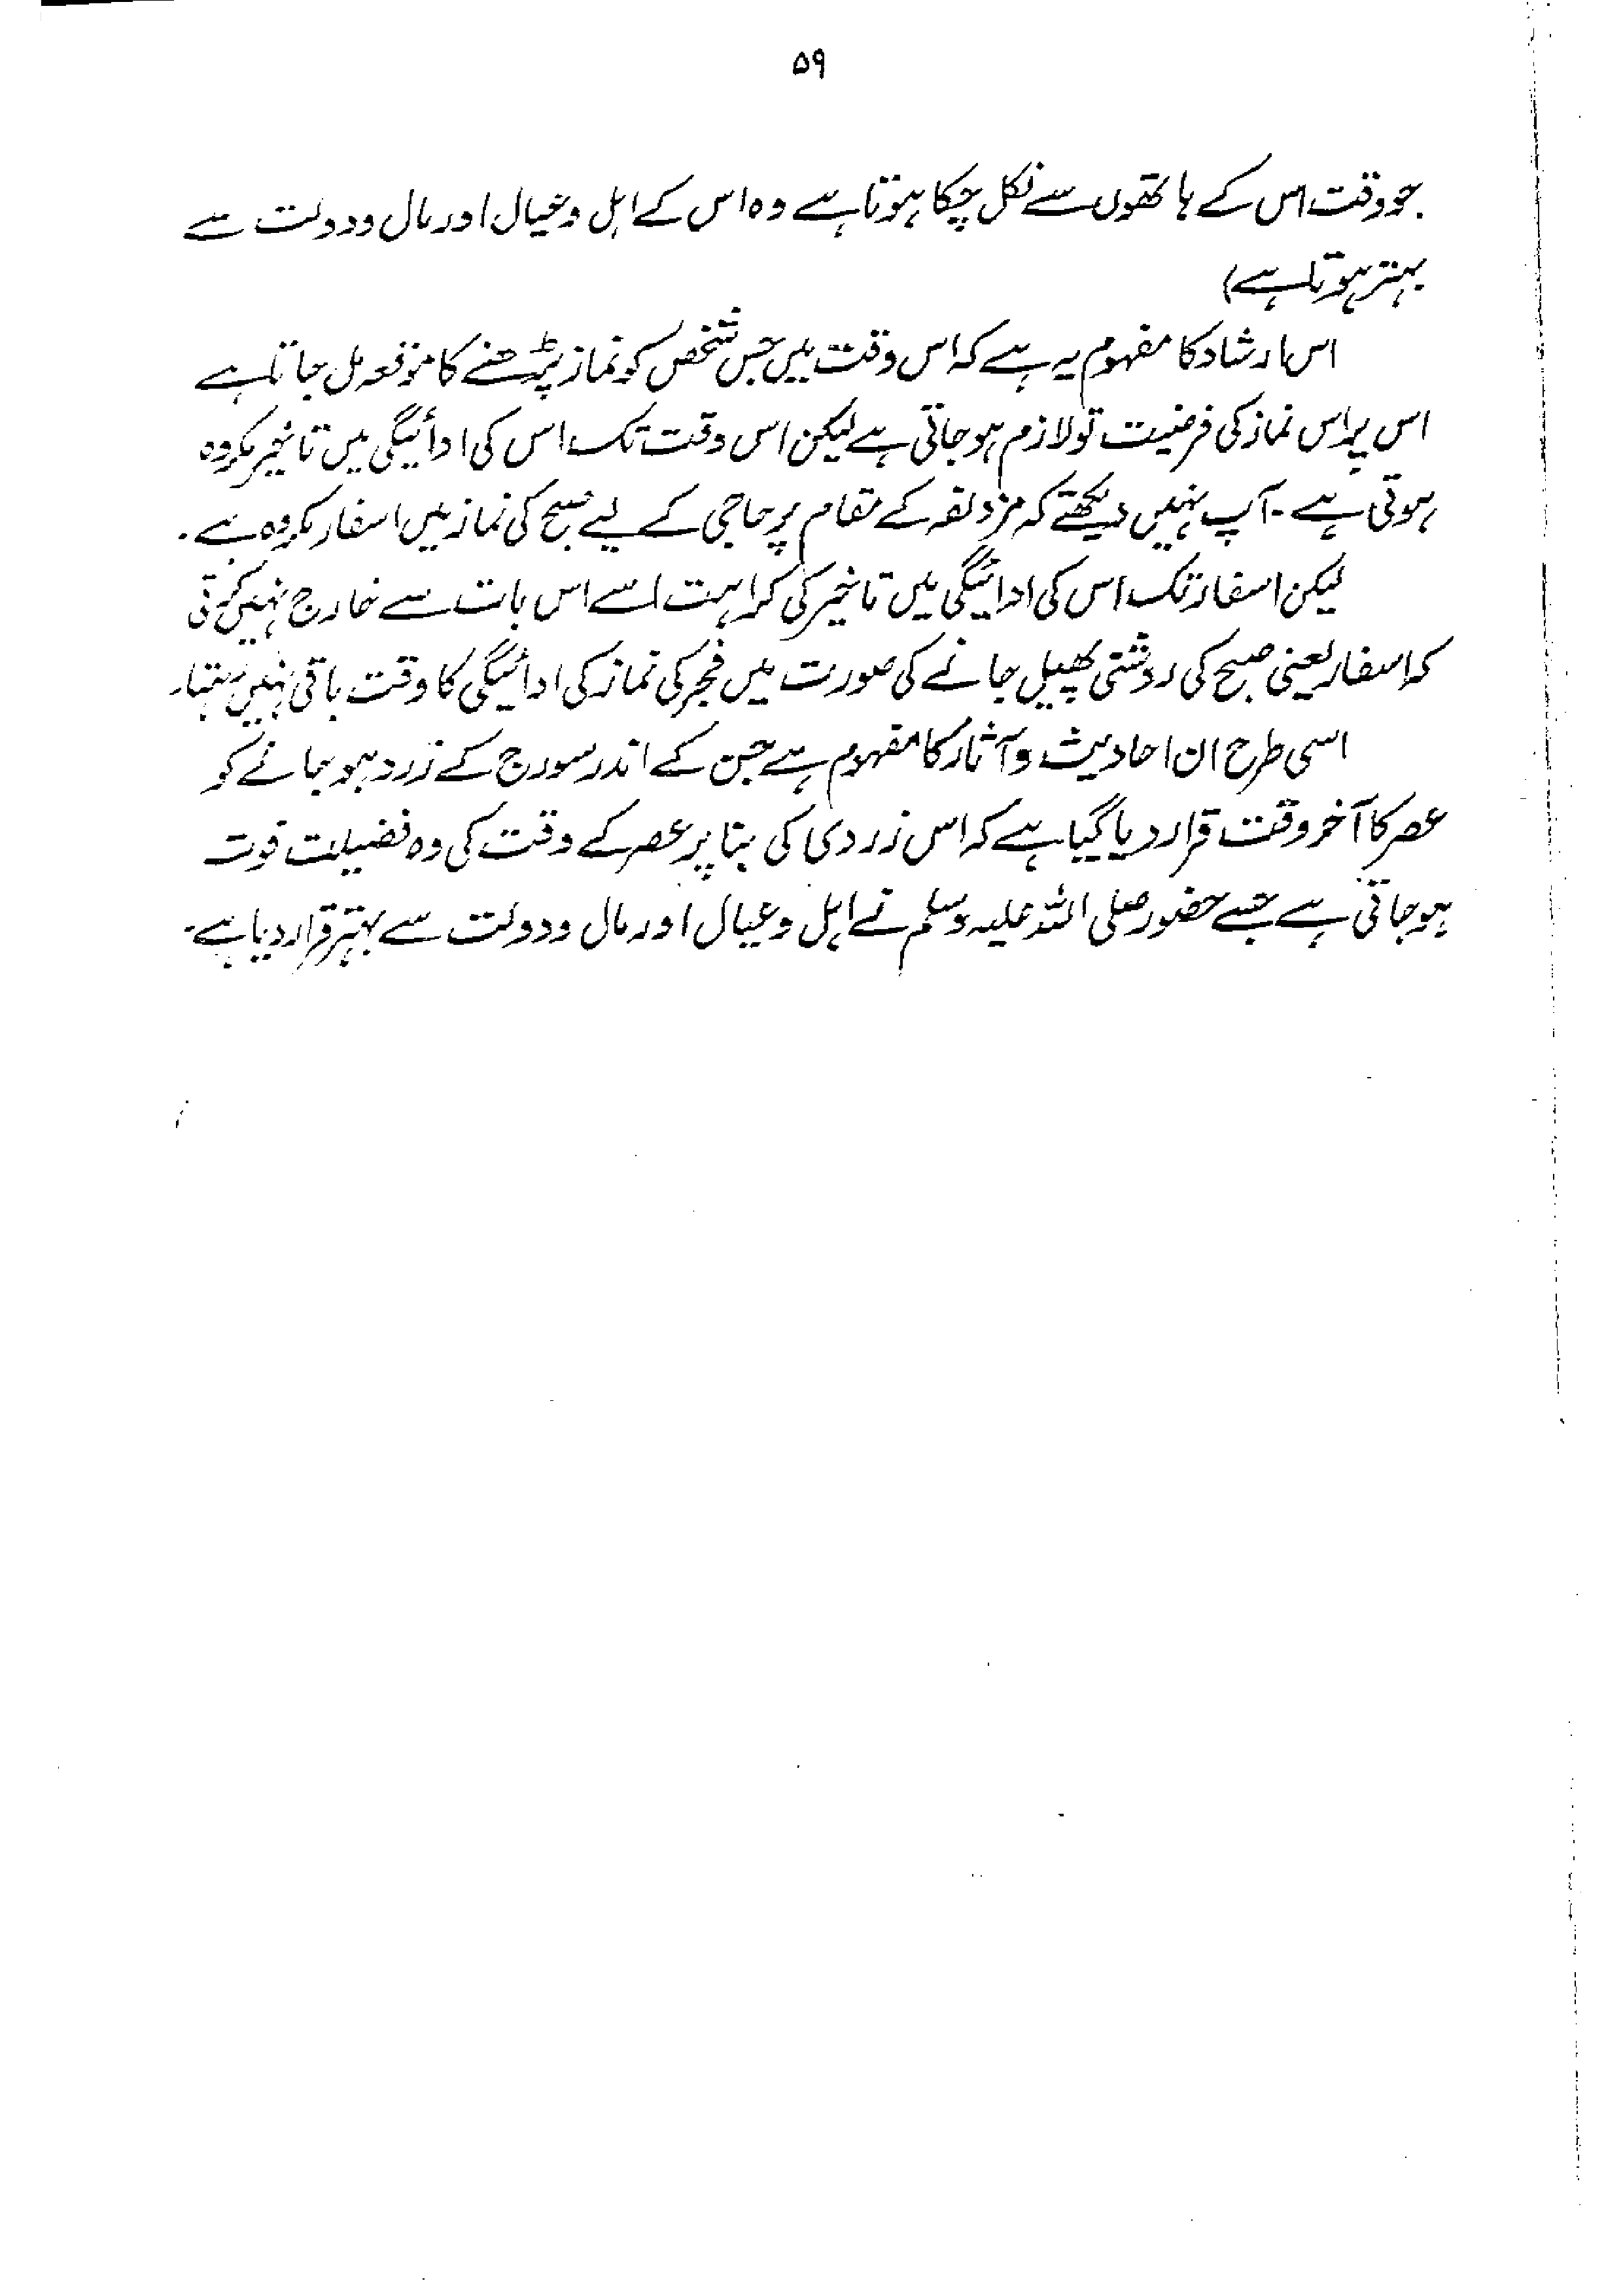 ۵۹
جو وقت اس کے ہاتھوں سے نکل چکا ہوتا ہے وہ اس کے اہل و عیال اور مال و دولت سے
بہتر ہوتا ہے)
اس ارشاد کا مفہوم یہ ہے کہ اس وقت میں جس شخص کو نماز پڑھنے کا موقعہ مل جاتا ہے
اس پر اس نماز کی فرضیت تو لازم ہو جاتی ہے لیکن اس وقت تک اس کی ادائیگی میں تاخیر مکروہ
ہوتی ہے ۔ آپ نہیں دیکھتے کہ مزدلفہ کے مقام پر حاجی کے لیے صبح کی نماز میں اسفار مکروہ ہے۔
لیکن اسفار تک اس کی ادائیگی میں تاخیر کی کراہت اسے اس بات سے خارج نہیں کرتی
کہ اسفار یعنی صبح کی روشنی پھیل جانے کی صورت میں فجر کی نماز کی ادائیگی کا وقت باقی نہیں رہتا۔
اسی طرح ان احادیث و آثار کا مفہوم ہے جن کے اندر سورج کے زرد ہو جانے کو
عصر کا آخر وقت قرار دیا گیا ہے کہ اس زردی کی بنا پر عصر کے وقت کی وہ فضیلت فوت
ہو جاتی ہے جسے حضور صلی اللہ علیہ وسلم نے اہل و عیال اور مال و دولت سے بہتر قرار دیا ہے۔